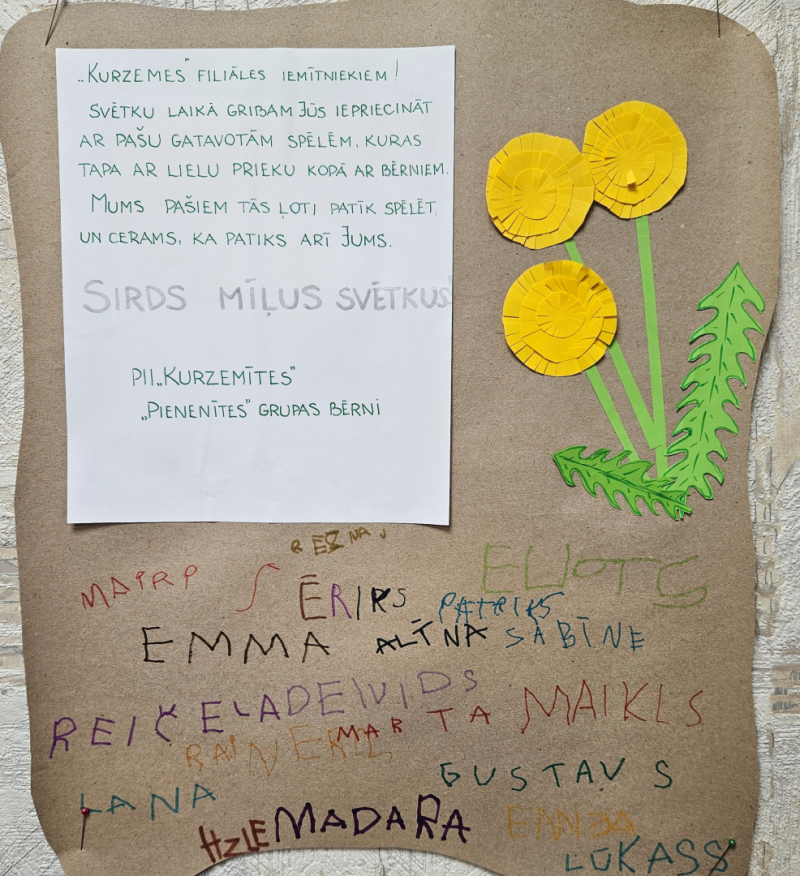 „KURZEMES" FILIĀLES IEMĪTNIEKIEM!
SVĒTKU LAIKĀ GRIBAM JŪS IEPRIECINĀT
AR PAŠU GATAVOTĀM SPĒLĒM, KURAS
TAPA AR LIELU PRIEKU KOPĀ AR BĒRNIEM.
MUMS PAŠIEM TĀS ĻOTI PATĪK SPĒLĒT,
UN CERAMS, KA PATIKS ARĪ JUMS.
SIRDS MĪĻUS SVĒTKUS!
PII „KURZEMĪTES"
„PIENENĪTES" GRUPAS BĒRNI
ELIOTS
ĒRIKS PATRIKS
EMMA ALĪNA SABĪNE
REIČELA DEIVIDS
MARTA MAIKLS
GUSTAVS
LANA
MADARA
LŪKASS